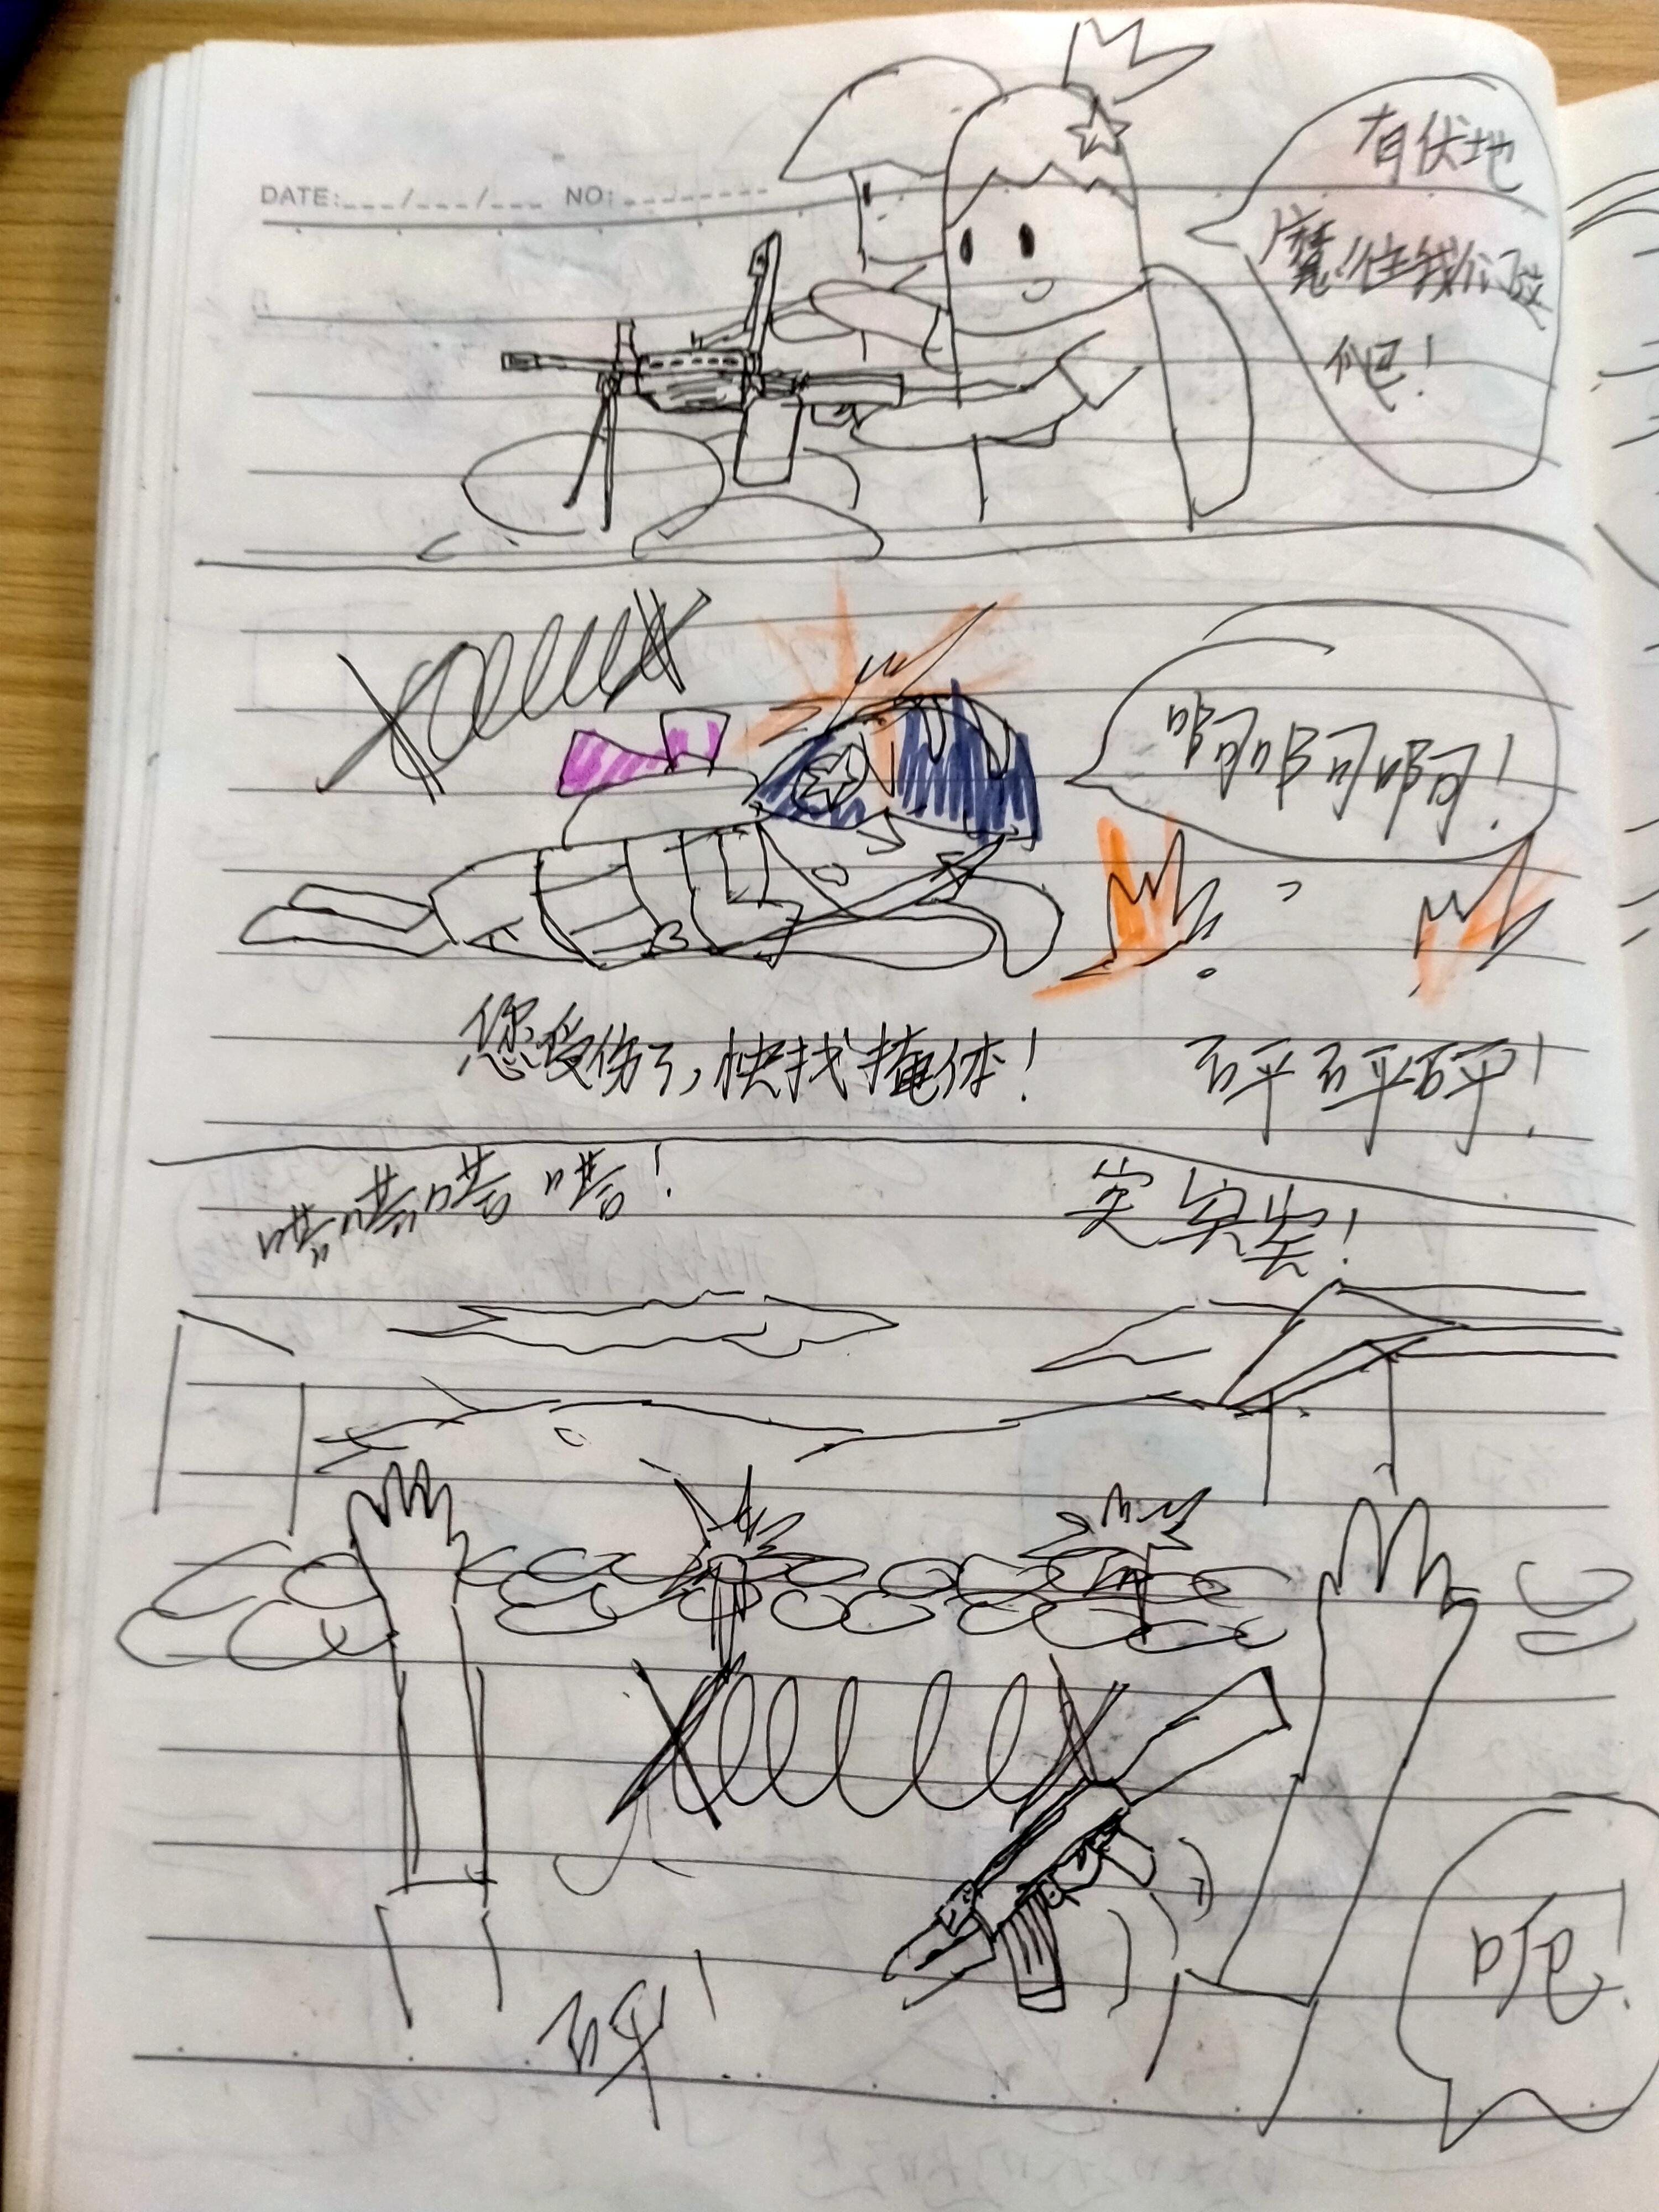 DATE:___/___/___ NO:________
有伏地
魔!往我们这
们吧!
啊啊啊!
您受伤了,快找掩体!
砰砰砰!
嗒嗒嗒嗒!
突突突!
砰!
呃!